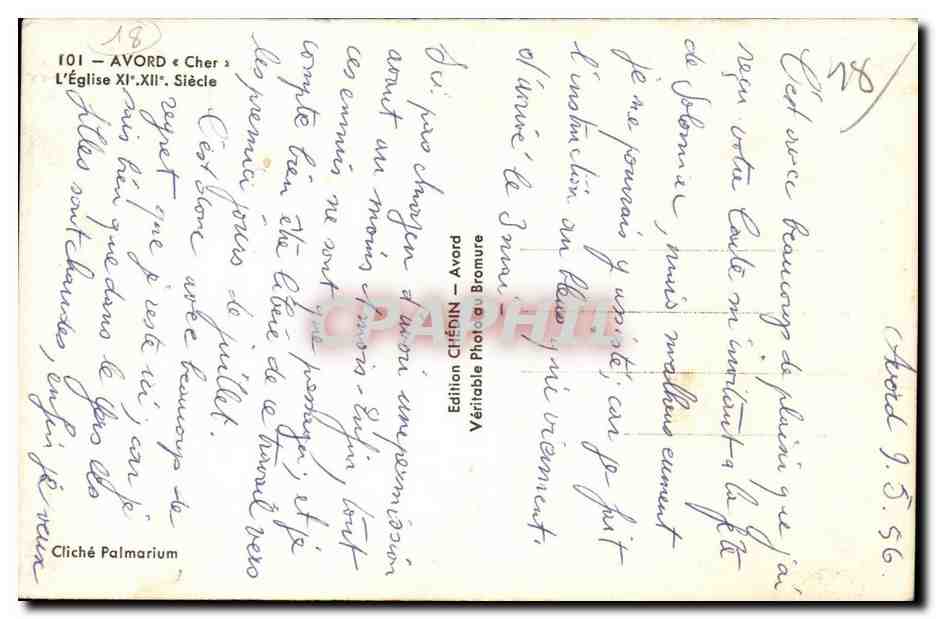 101 — AVORD « Cher »
L'Église XIe.XIIe. Siècle
18
28
Avord 9.5.56.
C'est avec beaucoup de plaisir que j'ai
reçu votre carte m'invitant à la fête
de Solomiac, mais malheureusement
je ne pourrais y assister, car je fait
l'instruction au bleus, qui viennent
d'arrivé le 3 mai.
Suis pas chargen d'avoir une permission
avant au moins 1 mois. Enfin, tout
ces ennuis ne sont que passager, et je
compte bien être libéré de ce travail vers
les premier jours de juillet.
C'est donc avec beaucoup de
regret que je reste ici, car je
sais bien que dans le Gers les
filles sont chaudes, enfin je veux
Edition CHÉDIN — Avord
Véritable Photo au Bromure
Cliché Palmarium
CPAPHIL